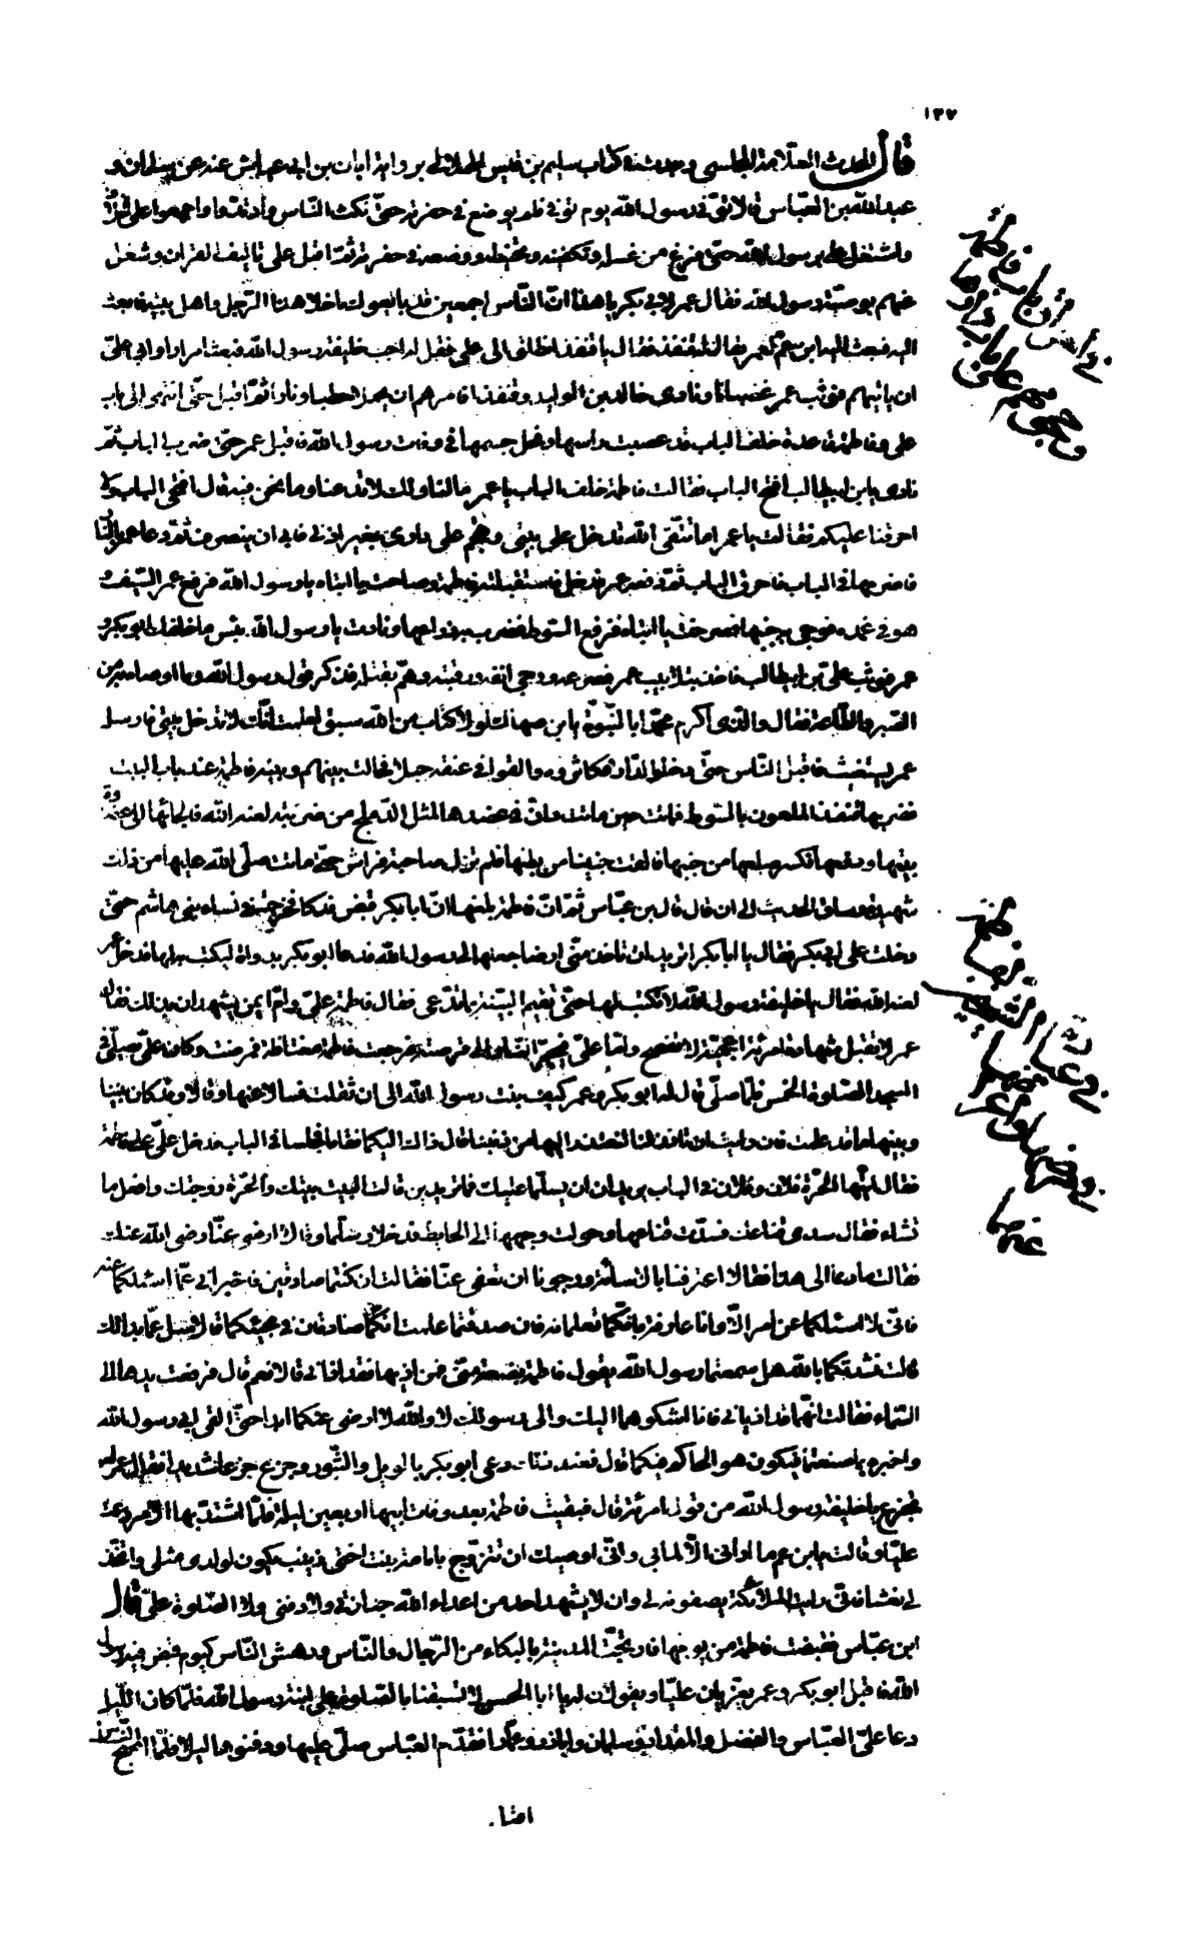 ١٣٧
قال المحدث العلامة المجلسي وجدت في كتاب سليم بن قيس الهلالي برواية ابان بن ابي عياش عنه عن سلمان و
عبدالله بن العباس قالا توفي رسول الله يوم توفي فلم يوضع في حفرته حتى نكث الناس وارتدوا واجمعوا على الخلاف
واشتغل علي برسول الله حتى فرغ من غسله وتكفينه وتحنيطه ووضعه في حفرته ثم اقبل على تاليف القران وشغل
عنهم بوصية رسول الله فقال عمر لابي بكر يا هذا ان الناس اجمعين قد بايعوك ما خلا هذا الرجل واهل بيته فابعث
اليه فبعث اليه ابن عم لعمر يقال له قنفذ فقال يا قنفذ انطلق الى علي فقل له اجب خليفة رسول الله فبعثا مرارا وابى علي
ان ياتيهم فوثب عمر غضبانا ونادى خالد بن الوليد وقنفذا فامرهم ان يحملا حطبا ونارا ثم اقبل حتى انتهى الى باب
علي وفاطمة قاعدة خلف الباب قد عصبت راسها ونحل جسمها في وفات رسول الله فاقبل عمر حتى ضرب الباب ثم
نادى يابن ابيطالب افتح الباب فقالت فاطمة خلف الباب يا عمر مالنا ولك لا تدعنا وما نحن فيه قال افتحي الباب والا
احرقنا عليكم فقالت يا عمر اما تتقي الله تدخل علي بيتي وتهجم على داري بغير اذني فابى ان ينصرف ثم دعا عمر بالنار
فاضرمها في الباب فاحرق الباب ثم دفعه عمر فدخل فاستقبلته فاطمة وصاحت يا ابتاه يا رسول الله فرفع عمر السيف و
هو في غمده فوجى به جنبها فصرخت يا ابتاه فرفع السوط فضرب به ذراعها ونادت يا رسول الله بئس ما خلفك ابو بكر و
عمر فوثب علي بن ابيطالب فاخذ بتلابيب عمر فصرعه ووجى انفه ورقبته وهم بقتله فذكر قول رسول الله وما اوصاه به من
الصبر والطاعة فقال والذي اكرم محمدا بالنبوة يابن صهاك لولا كتاب من الله سبق لعلمت انك لا تدخل بيتي فارسل
عمر يستغيث فاقبل الناس حتى دخلوا الدار فكاثروه والقوا في عنقه حبلا فحالت بينهم وبينه فاطمة عند باب البيت
فضربها قنفذ الملعون بالسوط فماتت حين ماتت وان في عضدها لمثل الدملج من ضربته لعنه الله فالجاها الى عضادة
بيتها ودفعها فكسر ضلعها من جنبها فالقت جنينا من بطنها فلم تزل صاحبة فراش حتى ماتت صلى الله عليها من ذلك
شهيدة وساق الحديث الى ان قال قال ابن عباس ثم ان فاطمة بلغها ان ابا بكر قبض فدكا فخرجت في نساء بني هاشم حتى
دخلت على ابي بكر فقال يا ابا بكر اتريد ان تاخذ مني ارضا جعلها لي رسول الله فدعا ابو بكر بدواة ليكتب به لها فدخل عمر
لعنه الله فقال يا خليفة رسول الله لا تكتب لها حتى تقيم البينة بما تدعي فقال فاطمة علي وام ايمن يشهدان بذلك فقال
عمر لا يقبل شهادة امرئة اعجمية لا تفصح واما علي فيجر النار الى قرصته فرجعت فاطمة مغتاظة فمرضت وكان علي يصلي في
المسجد الصلوة الخمس فلما صلى قال له ابو بكر وعمر كيف بنت رسول الله الى ان ثقلت فسالا عنها وقالا وقد كان بيننا
وبينها ما قد علمت فان رايت ان تاذن لنا لنعتذر اليها من ذنبنا قال ذاك اليكما فقاما فجلسا في الباب فدخل علي على فاطمة
فقال ايتها الحرة فلان وفلان في الباب يريدان ان يسلما عليك فما تريدين قالت البيت بيتك والحرة زوجتك وافعل ما
تشاء فقال سدي قناعك فسدت قناعها وحولت وجهها الى الحايط فدخلا وسلما وقالا ارضي عنا رضي الله عنك
فقالت ما دعا الى هذا فقالا اعترفنا بالاسائة ورجونا ان تعفي عنا فقالت ان كنتما صادقين فاخبراني عما اسئلكما عنه
فاني لا اسئلكما عن امر الا وانا عارفة بانكما تعلمانه فان صدقتما علمت انكما صادقان في مجيئكما قالا سلي عما بدالك
قالت نشدتكما بالله هل سمعتما رسول الله يقول فاطمة بضعة مني فمن اذيها فقد اذاني قالا نعم قال فرفعت يدها الى
السماء فقالت انهما قد اذياني فانا اشكوهما اليك والى رسولك لا والله لا ارضى عنكما ابدا حتى القى ابي رسول الله
واخبره بما صنعتما فيكون هو الحاكم فيكما قال فعند ذلك دعى ابو بكر بالويل والثبور وجزع جزعا شديدا فقال له عمر
تجزع يا خليفة رسول الله من قول امرئة قال فبقيت فاطمة بعد وفات ابيها اربعين ليلة فلما اشتد بها الامر دعت
عليا وقالت يابن عم ما اراني الا لما بي واني اوصيك ان تتزوج بامامة بنت اختي زينب يكون لولدي مثلي واتخذ
لي نعشا فاني رايت الملائكة يصفونه لي وان لا يشهد احد من اعداء الله جنازتي ولا دفني ولا الصلوة علي قال
ابن عباس فقبضت فاطمة من يومها فارتجت المدينة بالبكاء من الرجال والنساء ودهش الناس كيوم قبض فيه رسول
الله فاقبل ابو بكر وعمر يعزيان عليا ويقولان له يا ابا الحسن لا تسبقنا بالصلوة على ابنة رسول الله فلما كان الليل
دعا علي العباس والفضل والمقداد وسلمان وابا ذر وعمارا فقدم العباس صلى عليها ودفنوها ليلا فلما اصبح الناس
اقبل